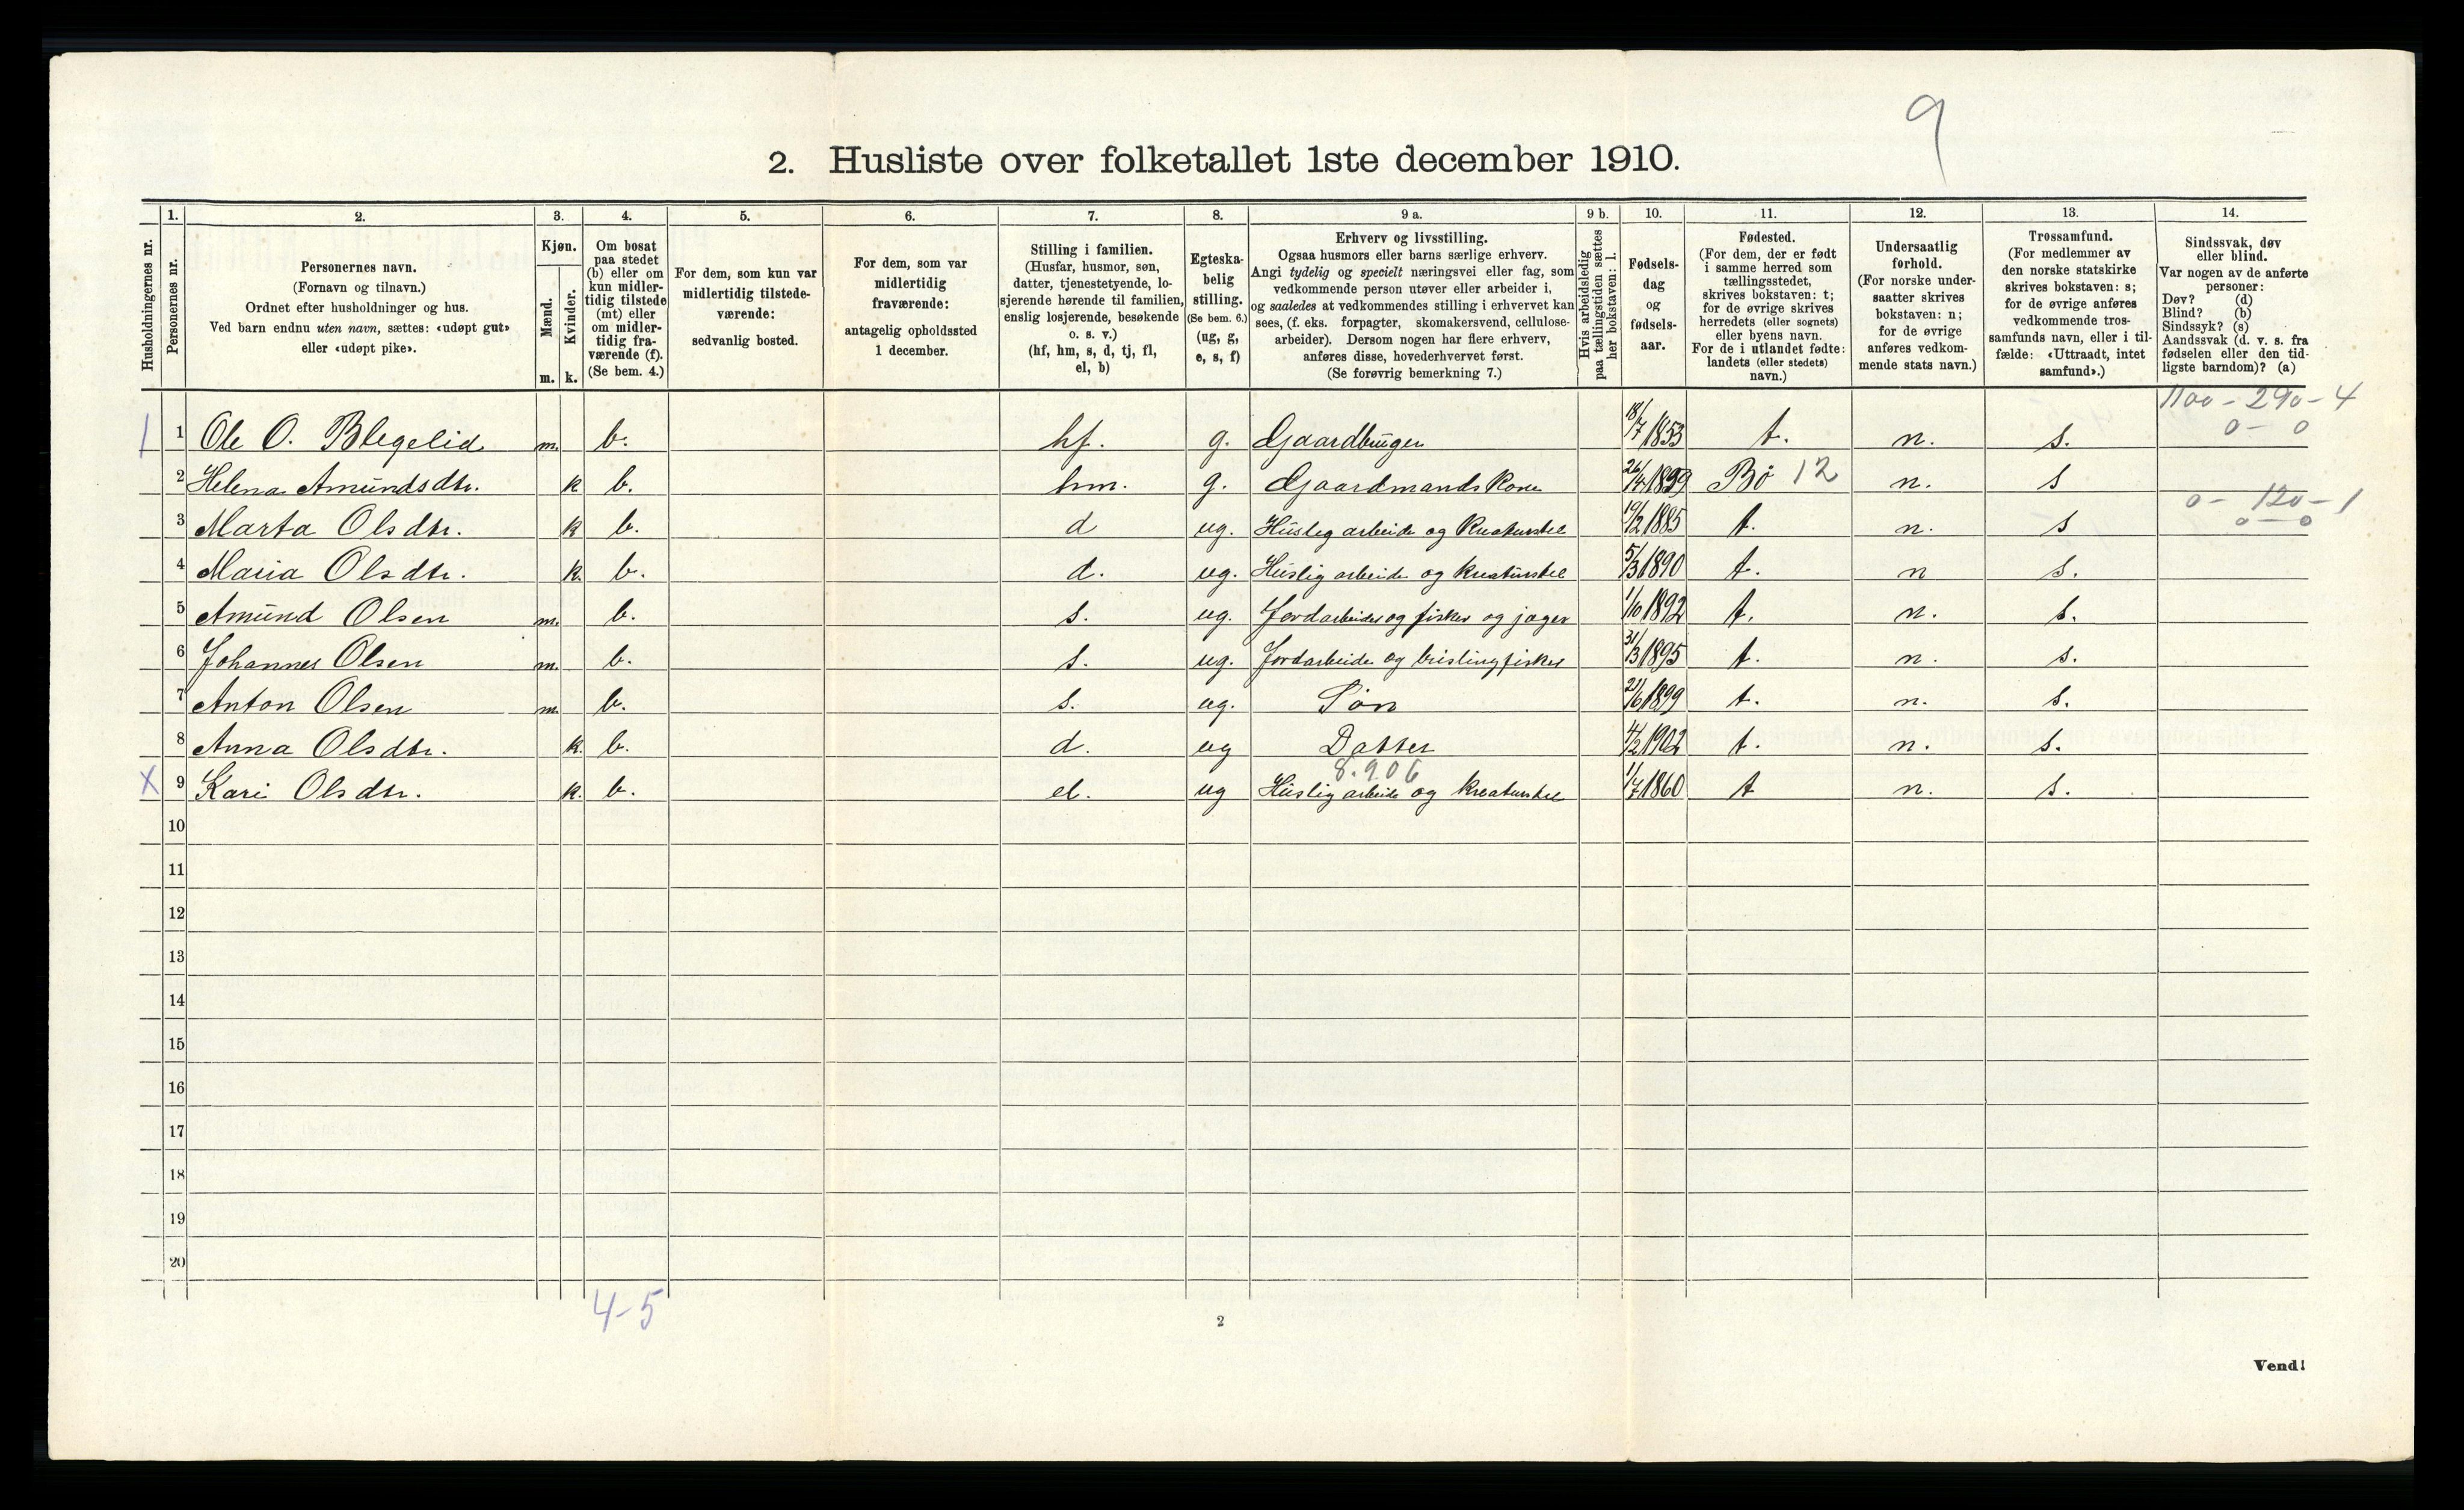 9
2. Husliste over folketallet 1ste december 1910.
Husholdningernes nr.
1. 2. 3. 4. 5. 6. 7. 8. 9 a. 9 b. 10. 11. 12. 13. 14.
Personernes nr.
Personernes navn.
(Fornavn og tilnavn.)
Ordnet efter husholdninger og hus.
Ved barn endnu uten navn, sættes: «udøpt gut»
eller «udøpt pike».
Kjøn.
Mænd.
Kvinder.
m. k.
Om bosat
paa stedet
(b) eller om
kun midler-
tidig tilstede
(mt) eller
om midler-
tidig fra-
værende (f).
(Se bem. 4.)
For dem, som kun var
midlertidig tilstede-
værende:
sedvanlig bosted.
For dem, som var
midlertidig
fraværende:
antagelig opholdssted
1 december.
Stilling i familien.
(Husfar, husmor, søn,
datter, tjenestetyende, lo-
sjerende hørende til familien,
enslig losjerende, besøkende
o. s. v.)
(hf, hm, s, d, tj, fl,
el, b)
Egteska-
belig
stilling.
(Se bem. 6.)
(ug, g,
e, s, f)
Erhverv og livsstilling.
Ogsaa husmors eller barns særlige erhverv.
Angi tydelig og specielt næringsvei eller fag, som
vedkommende person utøver eller arbeider i,
og saaledes at vedkommendes stilling i erhvervet kan
sees, (f. eks. forpagter, skomakersvend, cellulose-
arbeider). Dersom nogen har flere erhverv,
anføres disse, hovederhvervet først.
(Se forøvrig bemerkning 7.)
Hvis arbeidsledig
paa tællingstiden sættes
her bokstaven: l.
Fødsels-
dag
og
fødsels-
aar.
Fødested.
(For dem, der er født
i samme herred som
tællingsstedet,
skrives bokstaven: t;
for de øvrige skrives
herredets (eller sognets)
eller byens navn.
For de i utlandet fødte:
landets (eller stedets)
navn.)
Undersaatlig
forhold.
(For norske under-
saatter skrives
bokstaven: n;
for de øvrige
anføres vedkom-
mende stats navn.)
Trossamfund.
(For medlemmer av
den norske statskirke
skrives bokstaven: s;
for de øvrige anføres
vedkommende tros-
samfunds navn, eller i til-
fælde: «Uttraadt, intet
samfund».)
Sindssvak, døv
eller blind.
Var nogen av de anførte
personer:
Døv? (d)
Blind? (b)
Sindssyk? (s)
Aandssvak (d. v. s. fra
fødselen eller den tid-
ligste barndom)? (a)
1100 - 290 - 4
0 - 0
1 Ole O. Blegelid m. b. hf. g. Gaardbruger 18/7 1853 t. n. s.
2 Helena Amundsdtr. k b. hm. g. Gaardmandskone 26/4 1859 Bø 12 n. s
0 - 120 - 1
0 - 0
3 Marta Olsdtr. k b. d ug. Huslig arbeide og Kreaturstel 19/12 1885 t. n. s
4 Maria Olsdtr. k. b. d. ug. Huslig arbeide og kreaturstel 5/3 1890 t. n s.
5 Amund Olsen m. b. s. ug. Jordarbeider og fisker og jager 1/10 1892 t. n. s.
6 Johannes Olsen m. b. s. ug. Jordarbeide og brislingfisker 31/3 1895 t. n. s.
7 Anton Olsen m. b. s. ug. Søn 21/6 1899 t. n. s.
8 Anna Olsdtr. k. b. d. ug Datter 1902 t. n. s.
8.906
X 9 Kari Olsdtr. k. b. el. ug Huslig arbeide og kreaturstel 1/7 1860 t n. s.
10
11
12
13
14
15
16
17
18
19
20
4-5
2
Vend!